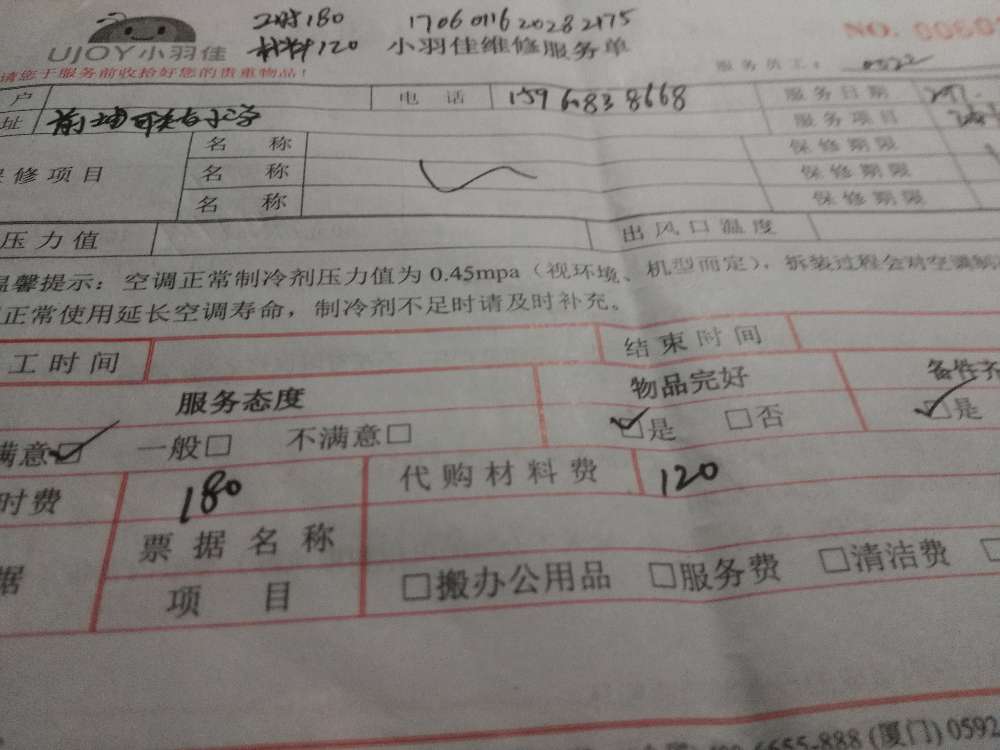 工时180 1706011620282175
UJOY小羽佳 材料120 小羽佳维修服务单 NO. 0060
请您于服务前收拾好您的贵重物品! 服务员工: 0522
户 电 话 15960838668 服务日期
址 服务项目
修项目 名 称 保修期限
名 称 保修期限
名 称 保修期限
压力值 出风口温度
温馨提示:空调正常制冷剂压力值为 0.45mpa(视环境、机型而定),拆装过程会对空调制
正常使用延长空调寿命,制冷剂不足时请及时补充。
工时间 结束时间
服务态度 物品完好 备件齐
满意☑ 一般□ 不满意□ ☑是 □否 ☑是
时费 180 代购材料费 120
据 票据名称
项 目 □搬办公用品 □服务费 □清洁费 □
6655-888 (厦门) 0592